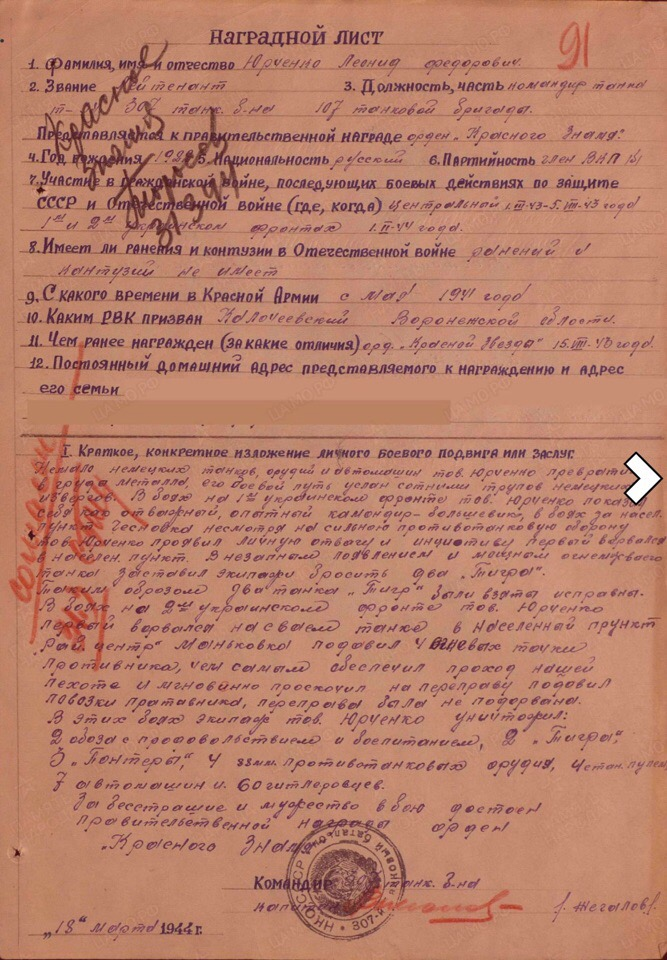 НАГРАДНОЙ ЛИСТ
91
1. Фамилия, имя и отчество Юрченко Леонид Федорович
2. Звание лейтенант 3. Должность, часть командир танка
307 танк. б-на 107 танковой бригады.
Представляется к правительственной награде орден „Красного Знамя"
4. Год рождения 5. Национальность русский 6. Партийность член ВКП(б)
7. Участие в гражданской войне, последующих боевых действиях по защите
СССР и Отечественной войне (где, когда) Центральной I.VII-43-5.VIII-43 года
1ый и 2ой украинском фронтах 1.II-44 года.
8. Имеет ли ранения и контузии в Отечественной войне ранений и
контузий не имеет
9. С какого времени в Красной Армии с мая 1941 года
10. Каким РВК призван Калачеевский Воронежской области.
11. Чем ранее награжден (за какие отличия) орд. „Красной Звезды" 15.VIII-43 года.
12. Постоянный домашний адрес представляемого к награждению и адрес
его семьи
Красное
Знамя
31.3.44
I. Краткое, конкретное изложение личного боевого подвига или заслуг.
Немало немецких танков, орудий и автомашин тов. Юрченко преврати
груда металла, его боевой путь услан сотнями трупов немецких
извергов. В боях на 1ом украинском фронте тов. Юрченко показал
себя как отважный, опытный командир-большевик, в боях за насел.
пункт Чесновка несмотря на сильную противотанковую оборону
тов. Юрченко проявил личную отвагу и инциативу первый ворвался
в населен. пункт. В незапном появлением и мощным огнем своего
танка заставил экипажи бросить два „Тигра".
Таким образом два танка „Тигр" были взяты исправны.
В боях на 2ом украинском фронте тов. Юрченко
первый ворвался на своем танке в населенный пункт
рай. центр Маньковка подавил 4 огневых точки
противника, чем самым обеспечил проход нашей
пехоте и мгновенно проскочил на переправу подавил
повозки противника, переправа была не подорвана.
В этих боях экипаж тов. Юрченко уничтожил:
2 обоза с продовольствием и воспитанием, 2 „Тигра",
3 „Пантеры", 4 88мм. противотанковых орудия, 4 стан. пулем
7 автомашин и 60 гитлеровцев.
За бесстрашие и мужество в бою достоен
правительственной награды орден
„Красного Знамя
Командир танк. б-на
капитан г. Жегалов
„18" марта 1944 г.
НКО СССР 307-й танковый батальон